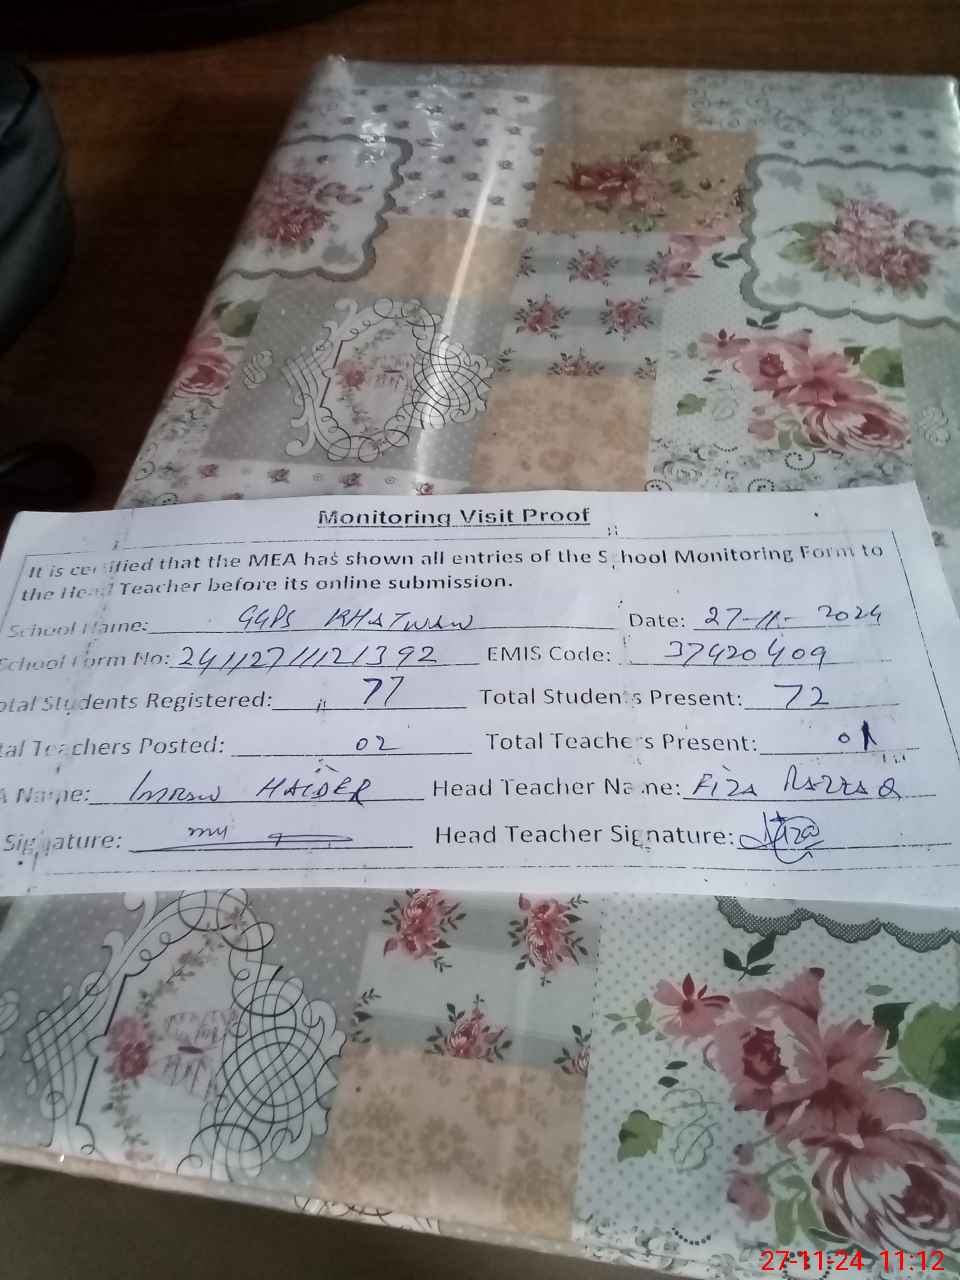 Monitoring Visit Proof
It is certified that the MEA has shown all entries of the School Monitoring Form to
the Head Teacher before its online submission.
School Name: GGPS KHATWAN Date: 27-11-2024
School Form No: 241127111121392 EMIS Code: 37420409
otal Students Registered: 77 Total Students Present: 72
tal Teachers Posted: 02 Total Teachers Present: 01
A Name: Imran HAIDER Head Teacher Name: FIZA RAZZAQ
Signature: my Head Teacher Signature:
27-11-24 11:12